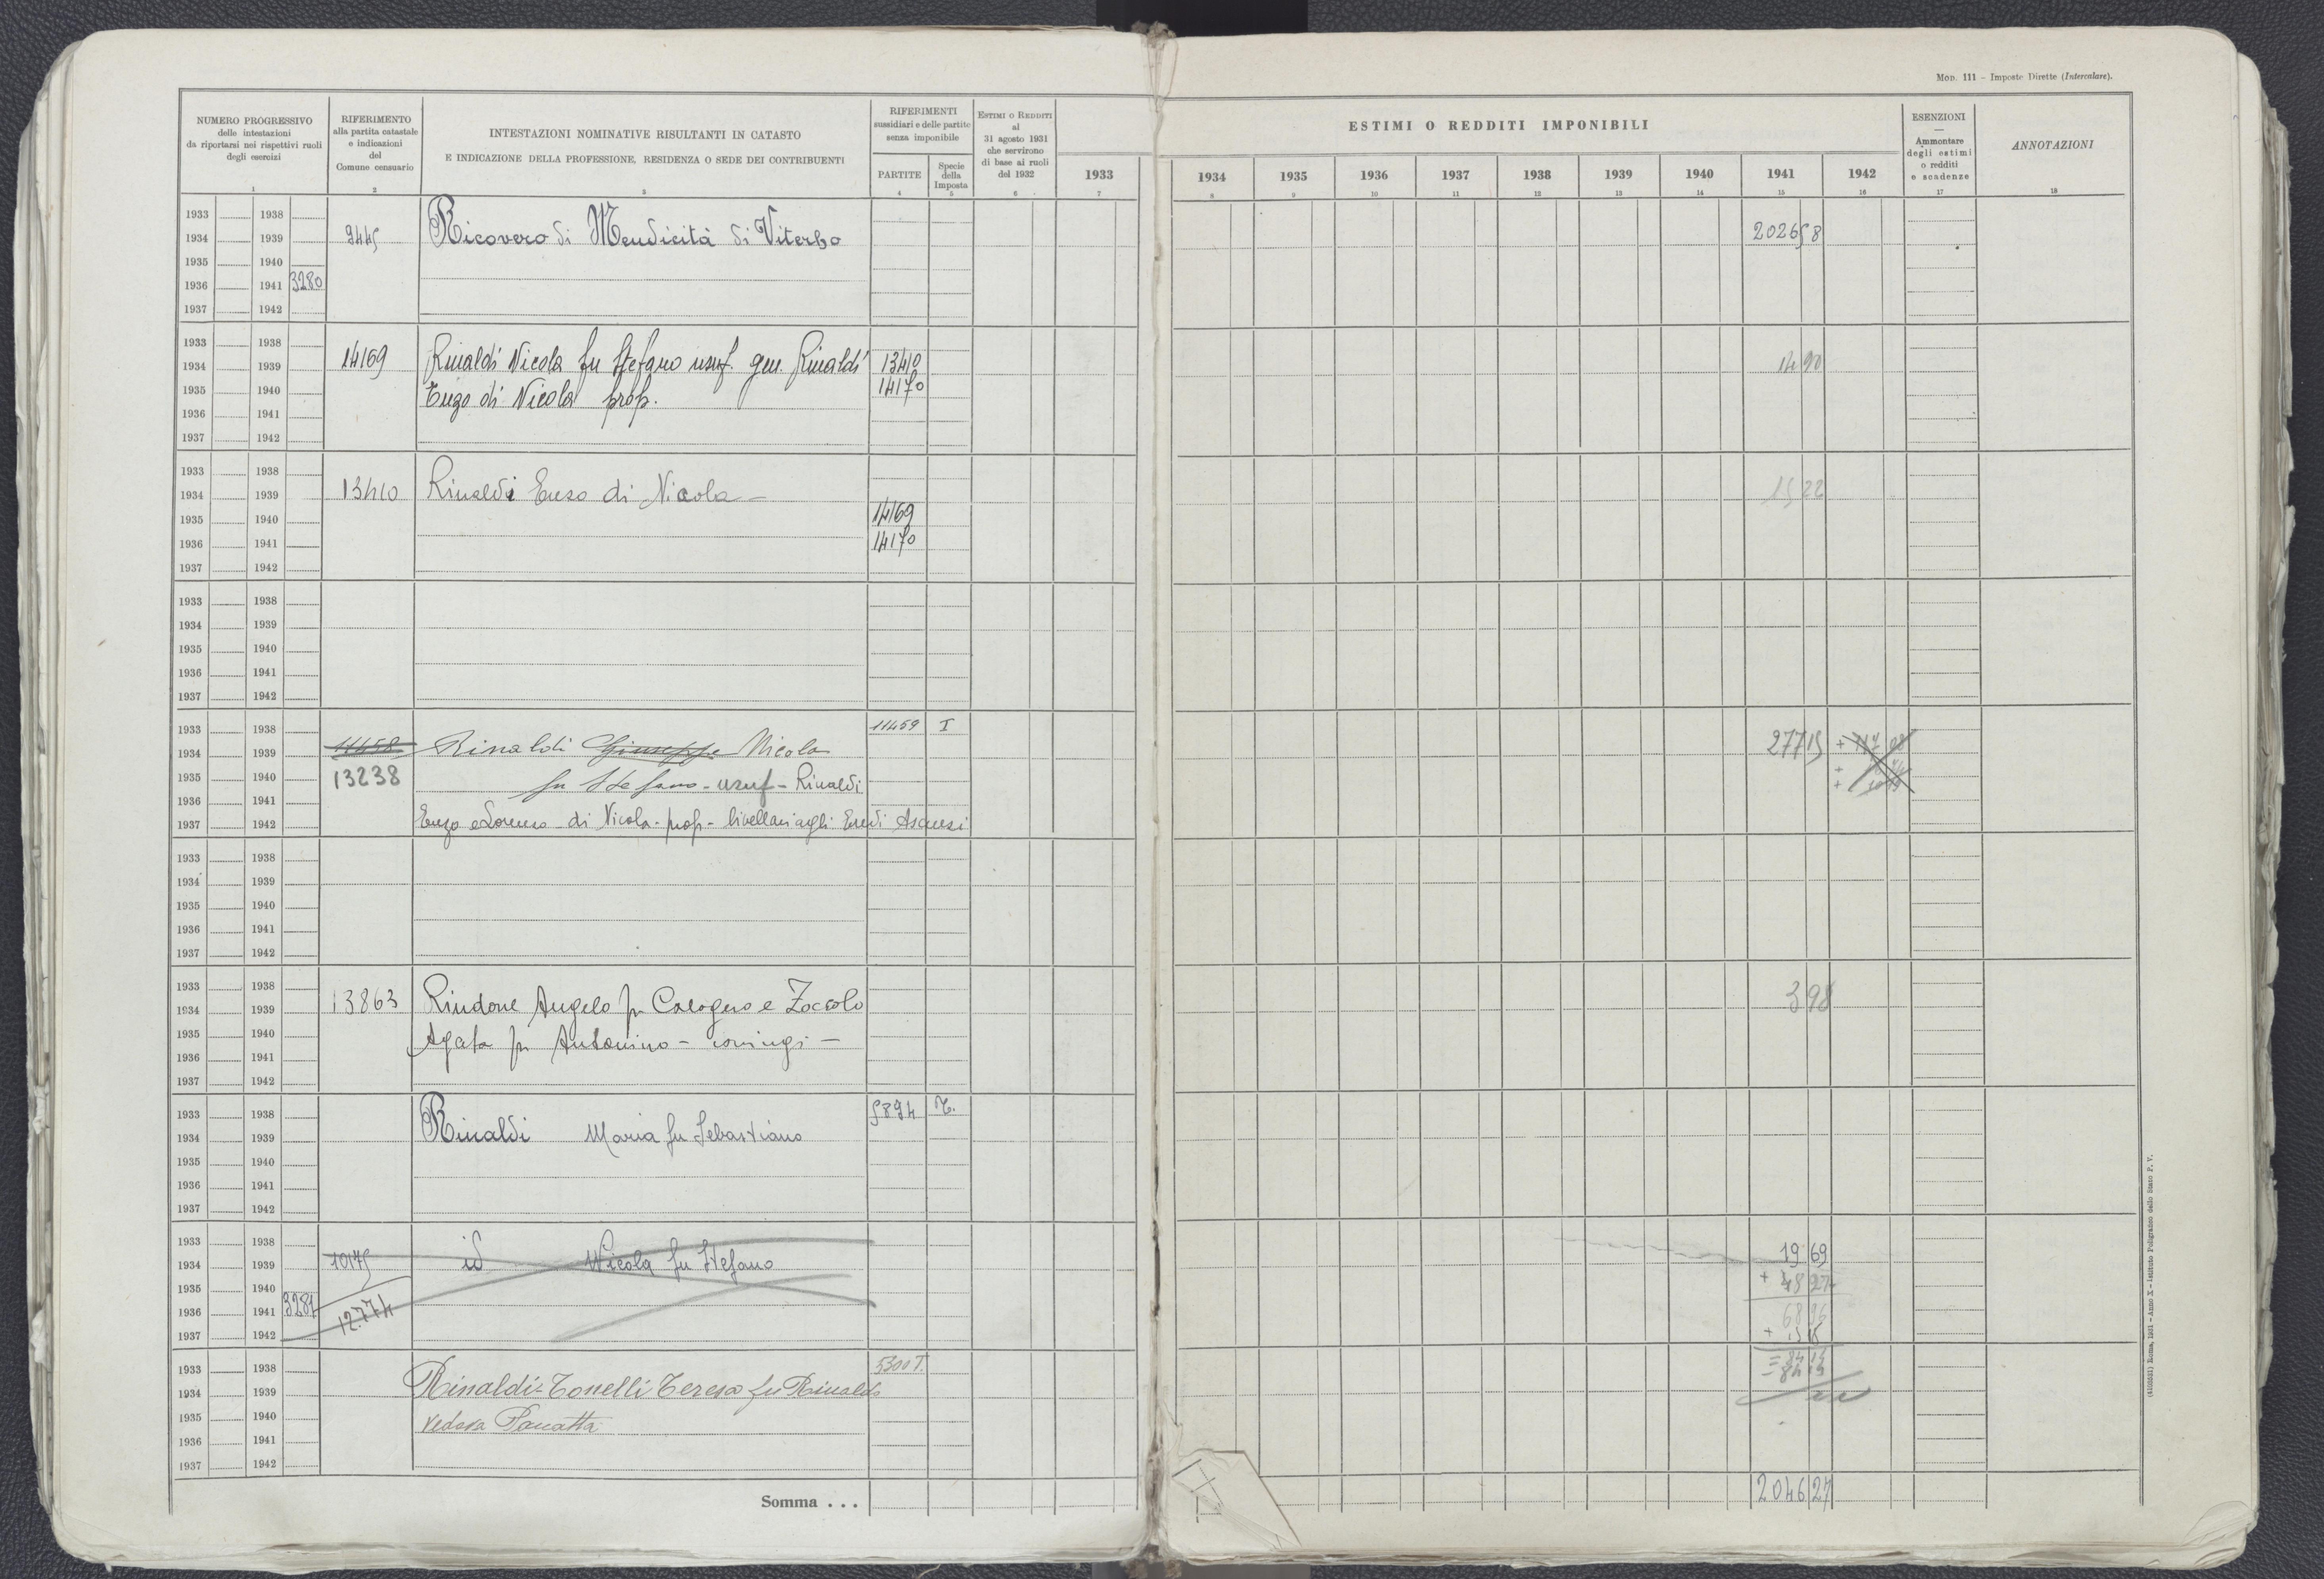 Mod. 111 - Imposte Dirette (Intercalare).
NUMERO PROGRESSIVO
delle intestazioni
da riportarsi nei rispettivi ruoli
degli esercizi
1
RIFERIMENTO
alla partita catastale
e indicazioni
del
Comune censuario
2
INTESTAZIONI NOMINATIVE RISULTANTI IN CATASTO
E INDICAZIONE DELLA PROFESSIONE, RESIDENZA O SEDE DEI CONTRIBUENTI
3
RIFERIMENTI
sussidiari e delle partite
senza imponibile
PARTITE
4
Specie
della
Imposta
5
ESTIMI O REDDITI
al
31 agosto 1931
che servirono
di base ai ruoli
del 1932
6
ESTIMI O REDDITI IMPONIBILI
1933 1934 1935 1936 1937 1938 1939 1940 1941 1942
7 8 9 10 11 12 13 14 15 16
ESENZIONI
Ammontare
degli estimi
o redditi
e scadenze
17
ANNOTAZIONI
18
1933 1938
1934 1939 9445 Ricovero di Mendicità di Viterbo 2026 58
1935 1940
1936 1941 3280
1937 1942
1933 1938
1934 1939 14169 Rinaldi Nicola fu Stefano usuf. gen. Rinaldi 13410 14 90
1935 1940 Enzo di Nicola prop. 14170
1936 1941
1937 1942
1933 1938
1934 1939 13410 Rinaldi Enzo di Nicola - 15 22
1935 1940 14169
1936 1941 14170
1937 1942
1933 1938
1934 1939
1935 1940
1936 1941
1937 1942
1933 1938 11459 I
1934 1939 11458 Rinaldi Giuseppe Nicola 277 15
1935 1940 13238 fu Stefano - usuf - Rinaldi
1936 1941
1937 1942 Enzo e Lorenzo di Nicola - prop - livellari agli Eredi
1933 1938
1934 1939
1935 1940
1936 1941
1937 1942
1933 1938
1934 1939 13863 Rindone Angelo fu Calogero e Zoccolo 3 98
1935 1940 Agata fu Antonino - coniugi -
1936 1941
1937 1942
1933 1938 5894 T.
1934 1939 Rinaldi Maria fu Sebastiano
1935 1940
1936 1941
1937 1942
1933 1938
1934 1939 10175 id Nicola fu Stefano 19 69
1935 1940 + 48 27
1936 1941 3281 12774 68 96
1937 1942
1933 1938 5300 T.
1934 1939 Rinaldi-Tonelli Teresa fu Rinaldo
1935 1940 vedova Panatta
1936 1941
1937 1942
Somma . . . 2046 27
(4103531) Roma, 1931 - Anno X - Istituto Poligrafico dello Stato P. V.